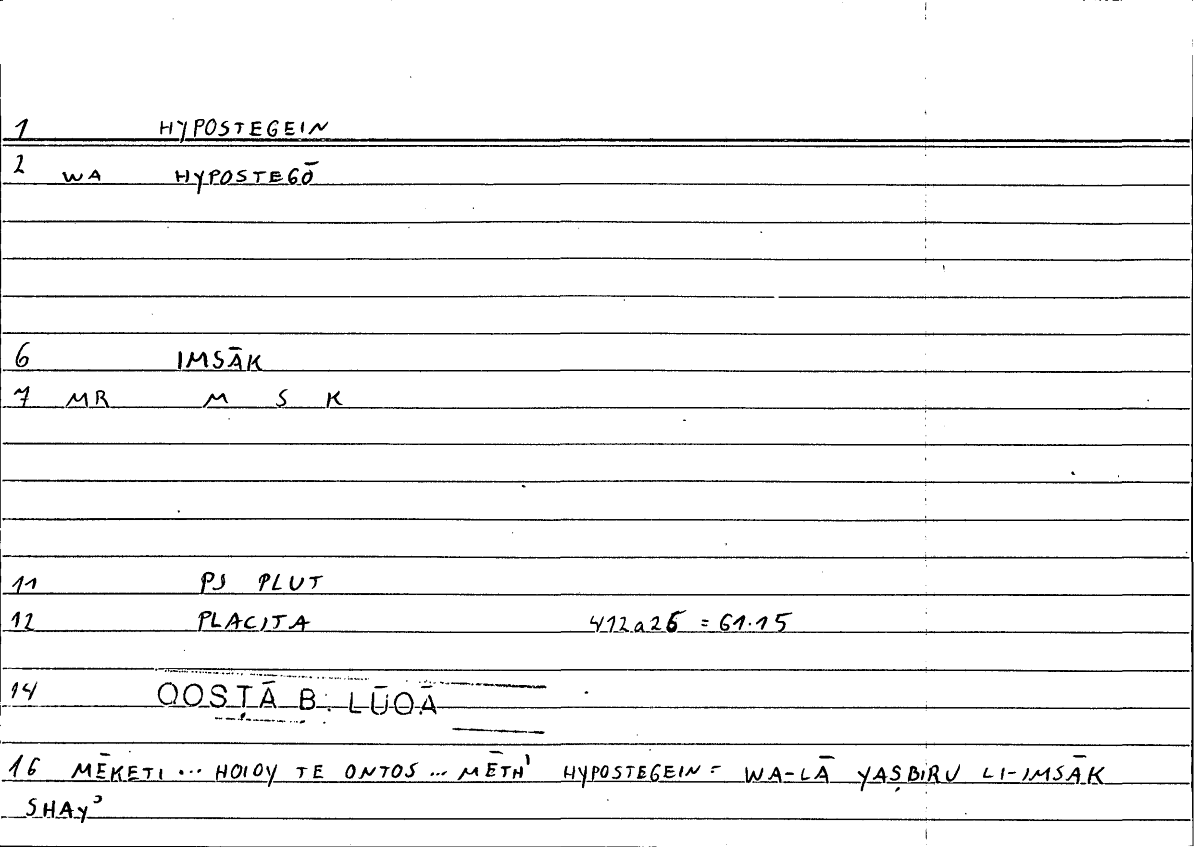 1 HYPOSTEGEIN
2 WA HYPOSTEGŌ
6 IMSĀK
7 MR M S K
11 PS PLUT
12 PLACITA 412a25 = 61.15
14 QOSṬĀ B. LŪQĀ
16 MĒKETI ... HOIOY TE ONTOS ... MĒTH' HYPOSTEGEIN = WA-LĀ YAṢBIRU LI-IMSĀK
SHAYʾ